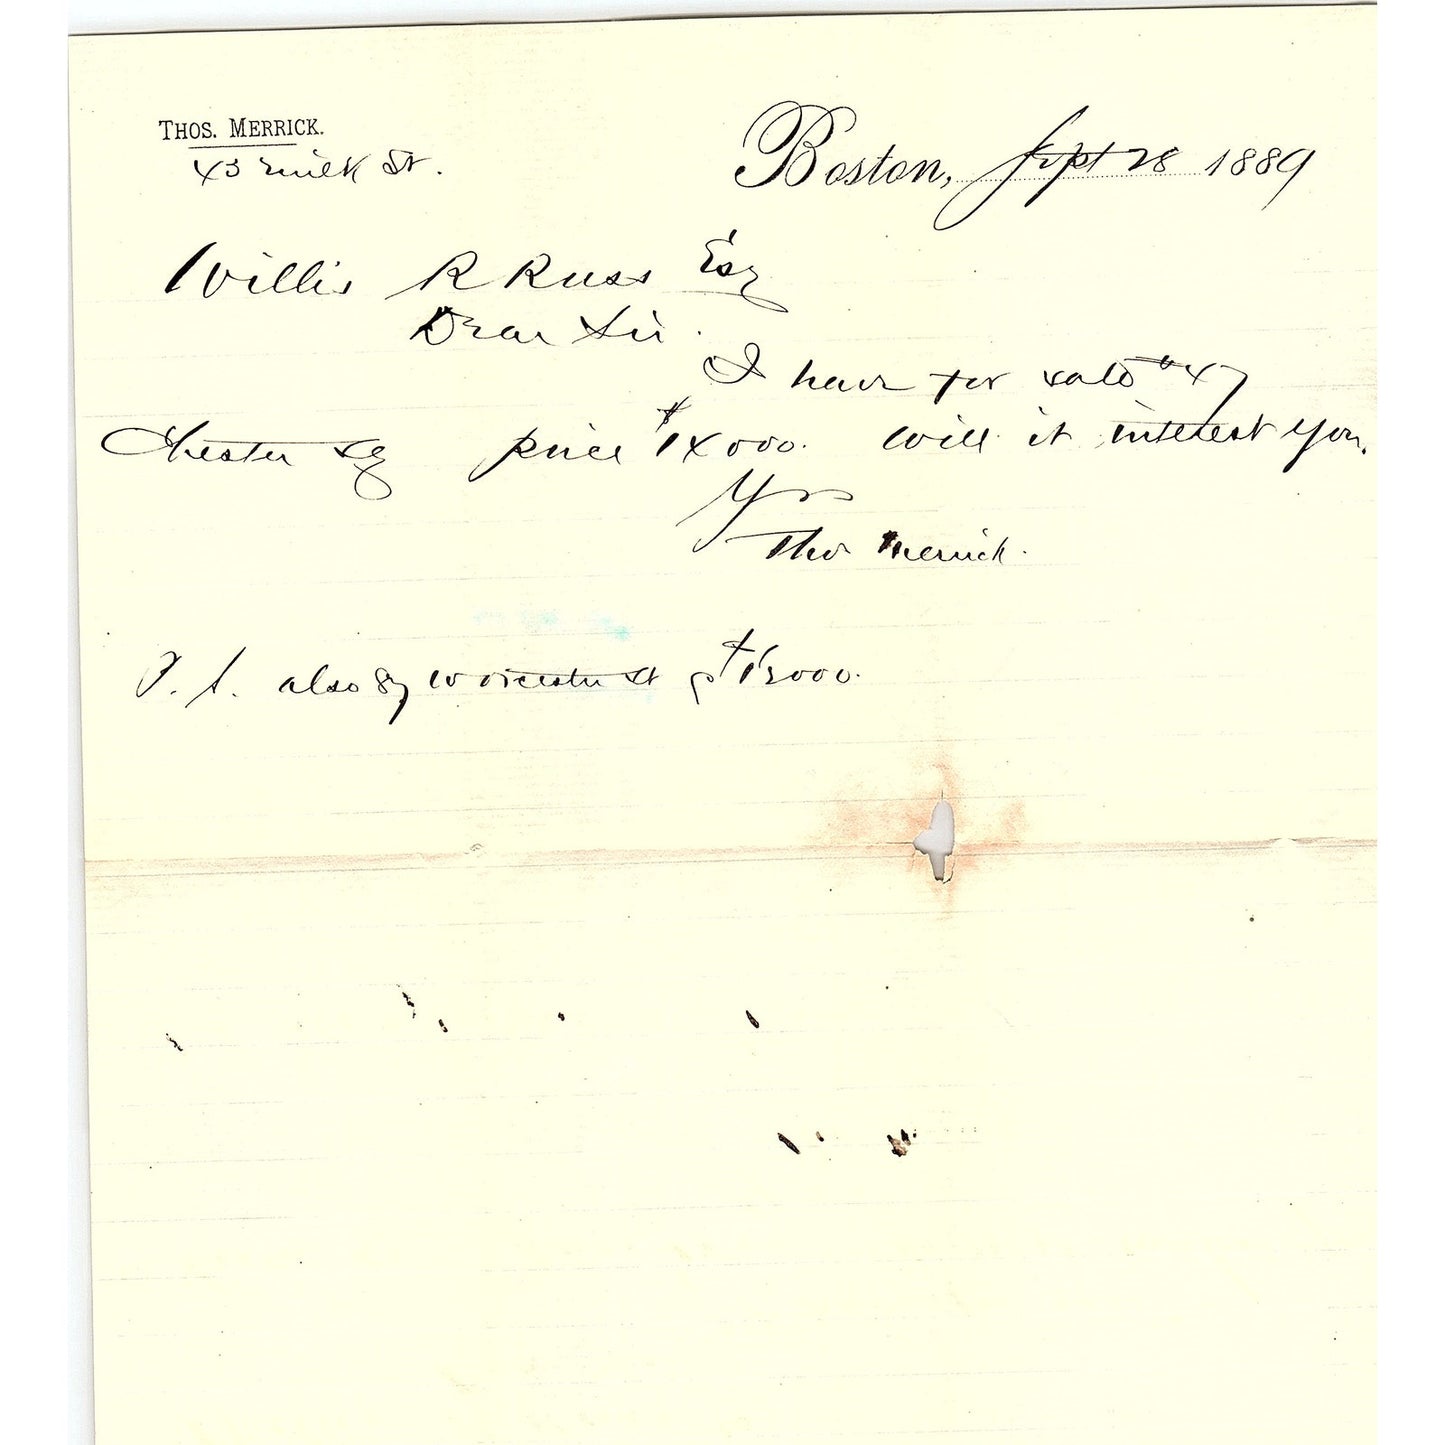 THOS. MERRICK.
43 Milk St.
Boston, Sept 28 1889
Willis R Russ Esq
Dear Sir.
I have for sale #47
Chester Sq price $14000. will it interest you.
Yrs
Thos Merrick.
P.S. also 87 Worcester St $13000.